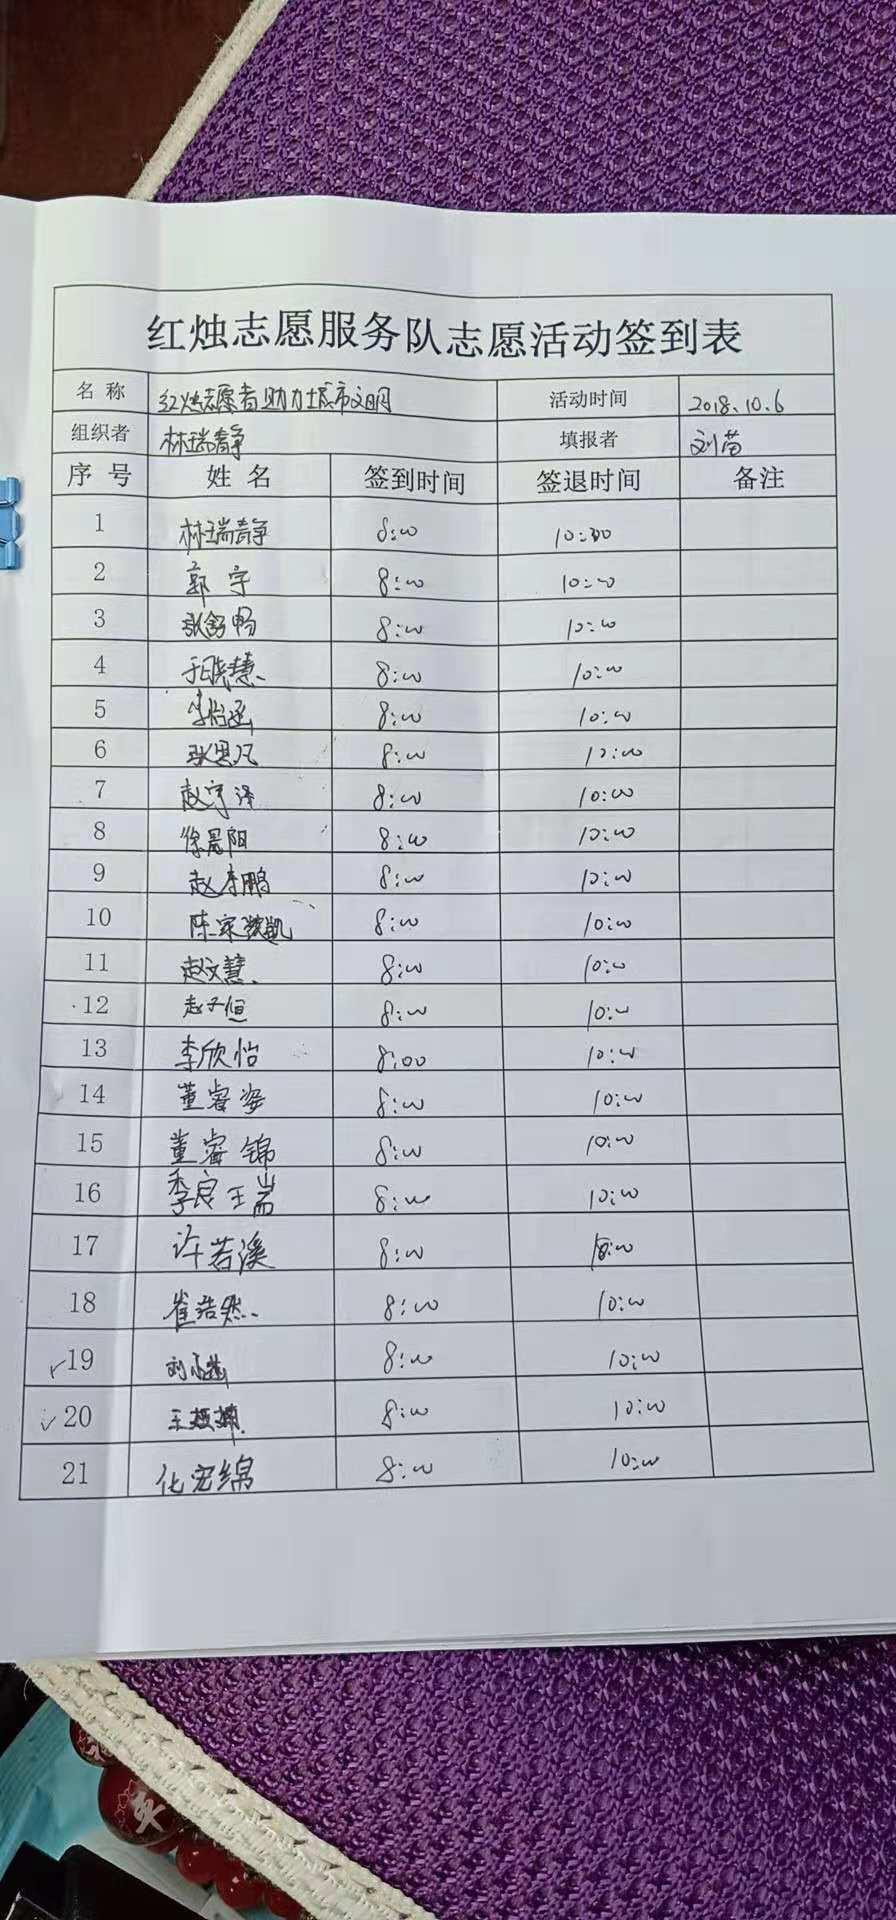 红烛志愿服务队志愿活动签到表
名称 红烛志愿者助力城市文明 活动时间 2018.10.6
组织者 林瑞静 填报者 刘苗
序号 姓名 签到时间 签退时间 备注
1 林瑞静 8:00 10:00
2 郭宇 8:00 10:00
3 张舒畅 8:00 10:00
4 于晓慧 8:00 10:00
5 李怡涵 8:00 10:00
6 张思凡 8:00 10:00
7 赵宇泽 8:00 10:00
8 徐晨阳 8:00 10:00
9 赵李鹏 8:00 10:00
10 陈家凯 8:00 10:00
11 赵文慧 8:00 10:00
12 赵子恒 8:00 10:00
13 李欣怡 8:00 10:00
14 董睿姿 8:00 10:00
15 董睿锦 8:00 10:00
16 季良王耑 8:00 10:00
17 许若溪 8:00 10:00
18 崔浩然 8:00 10:00
19 刘 8:00 10:00
20 王 8:00 10:00
21 化宏绵 8:00 10:00